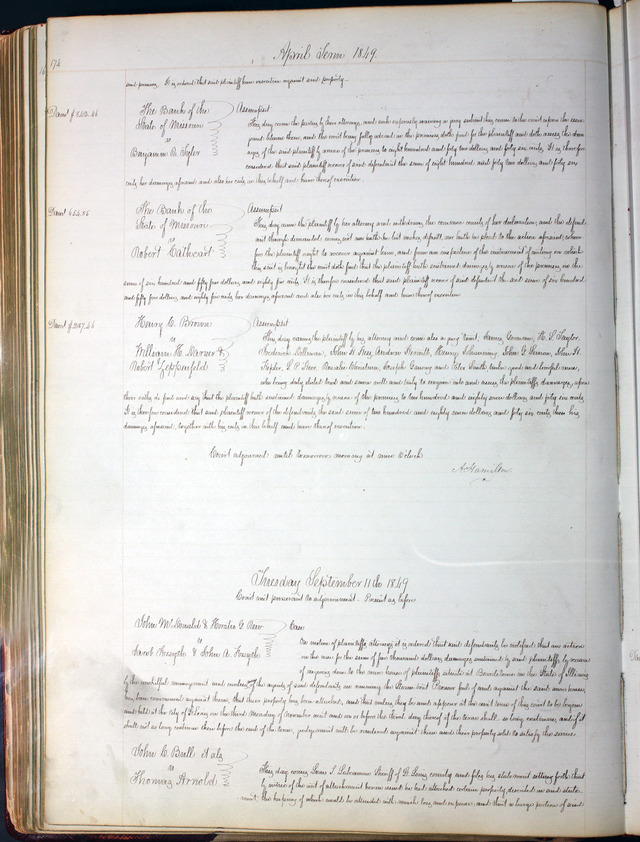 174
April Term 1849.
said premises. It is ordered that said plaintiff have execution against said property.
Damt $842.46
The Bank of the
State of Missouri
vs
Benjamin B. Tyler
Assumpsit
This day come the parties by their attorneys, and each expressly waiving a jury submit this cause to the court upon the issue
joined between them, and the court being fully advised in the premises doth find for the plaintiff and doth assess the dam-
ages of the said plaintiff by reason of the premises to eight hundred and forty two dollars and forty six cents. It is therefore
considered that said plaintiff recover of said defendant the sum of eight hundred and forty two dollars and forty six
cents her damages aforesaid and also her costs in this behalf and have thereof execution.
Damt 654.85
The Bank of the
State of Missouri
vs
Robert Cathcart
Assumpsit
This day came the plaintiff by her attorney and withdraws the common counts of her declaration, and the defend-
ant though demanded comes not but makes default, nor doth he plead to the action aforesaid,
for the plaintiff ought to recover against him, and from an inspection of the instrument of writing on which
this suit is brought the court doth find that the plaintiff hath sustained damages by reason of the premises, in the
sum of six hundred and fifty four dollars, and eighty five cents. It is therefore considered that said plaintiff recover of said defendant the said sum of six hundred
and fifty four dollars, and eighty five cents her damages aforesaid and also her costs in this behalf and have thereof execution
Damt $287.46
Henry C. Brown
vs
William H. Darnes &
Robert Zeppenfeld
Assumpsit
This day comes the plaintiff by his attorney and come also a jury towit, James Conover, H. L. Taylor,
John H.
Joseph and Peter Smith twelve good and lawful men,
who being duly elected tried and sworn well and truly to enquire into and assess the plaintiffs damages, upon
their oaths do find and say that the plaintiff hath sustained damages by reason of the premises to two hundred and eighty seven dollars and forty six cents.
It is therefore considered that said plaintiff recover of the defendants the said sum of two hundred and eighty seven dollars and forty six cents his
damages aforesaid, together with his costs in this behalf and have thereof execution.
Court adjourned until tomorrow morning at nine O'clock
A. Hamilton
Tuesday September 11th 1849
Court met pursuant to adjournment. Present as before
John McDonald & Horatio G.
vs
Jacob Forsythe & John A. Forsythe
Case
On motion of plaintiffs attorney it is ordered that said defendants be notified that an action
on the case for the sum of five thousand dollars damages sustained by said plaintiffs by reason
of injury done to the ware house of plaintiffs situate at Beardstown in the State of Illinois
by the unskilful management and conduct of the agents of said defendants in running the Steam boat foul of and against the said ware house,
has been commenced against them, that their property has been attached, and that unless they be and appear at the next term of this court to be begun
and held at the City of St. Louis on the third Monday of November next and on or before the third day thereof if the term shall so long continue, and if it
shall not so long continue then before the end of the term, judgment will be rendered against them and their property sold to satisfy the same.
John C. Bull et als
vs
Thomas Arnold
This day comes Louis T. Labeaume Sheriff of St. Louis county and files his statement setting forth that
by virtue of the writ of attachment herein issued he has attached certain property described in said state-
ment the keeping of which would be attended with much loss and expense, and that a large portion of said